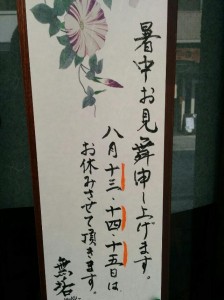 暑中お見舞申し上げます。
八月十三・十四・十五日は、
お休みさせて頂きます。